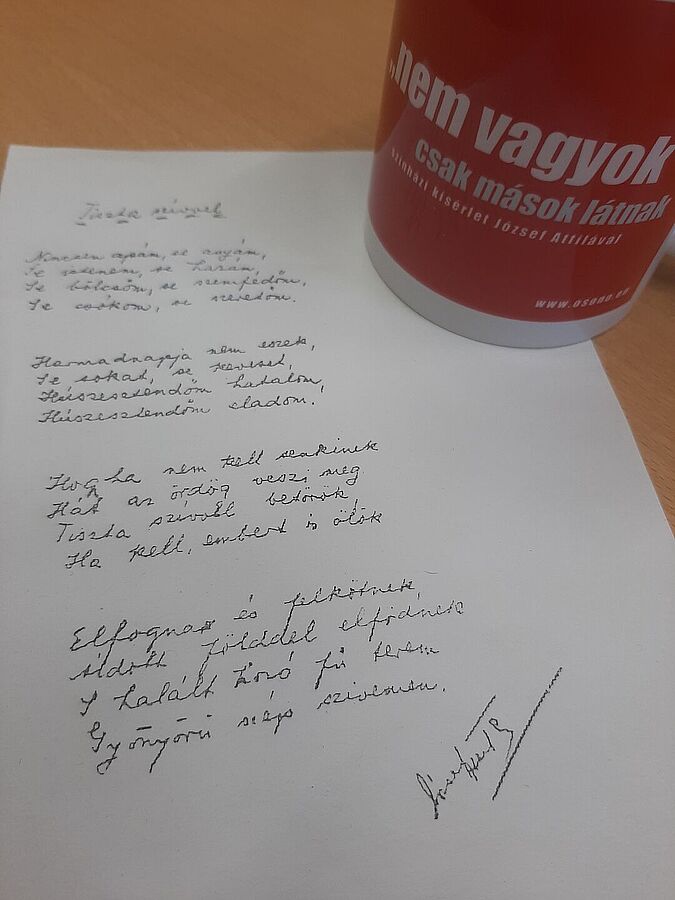 „nem vagyok
csak mások látnak
színházi kísérlet József Attilával
www.osono.eu
Tiszta szívvel
Nincsen apám, se anyám,
Se istenem, se hazám,
Se bölcsőm, se szemfedőm,
Se csókom, se szeretőm.
Harmadnapja nem eszek,
Se sokat, se keveset,
Húszesztendőm hatalom,
Húszesztendőm eladom.
Hogyha nem kell senkinek
Hát az ördög veszi meg
Tiszta szívvel betörök,
Ha kell, embert is ölök
Elfognak és felkötnek,
áldott földdel elfödnek
S halált hozó fű terem
Gyönyörű szép szivemen.
József